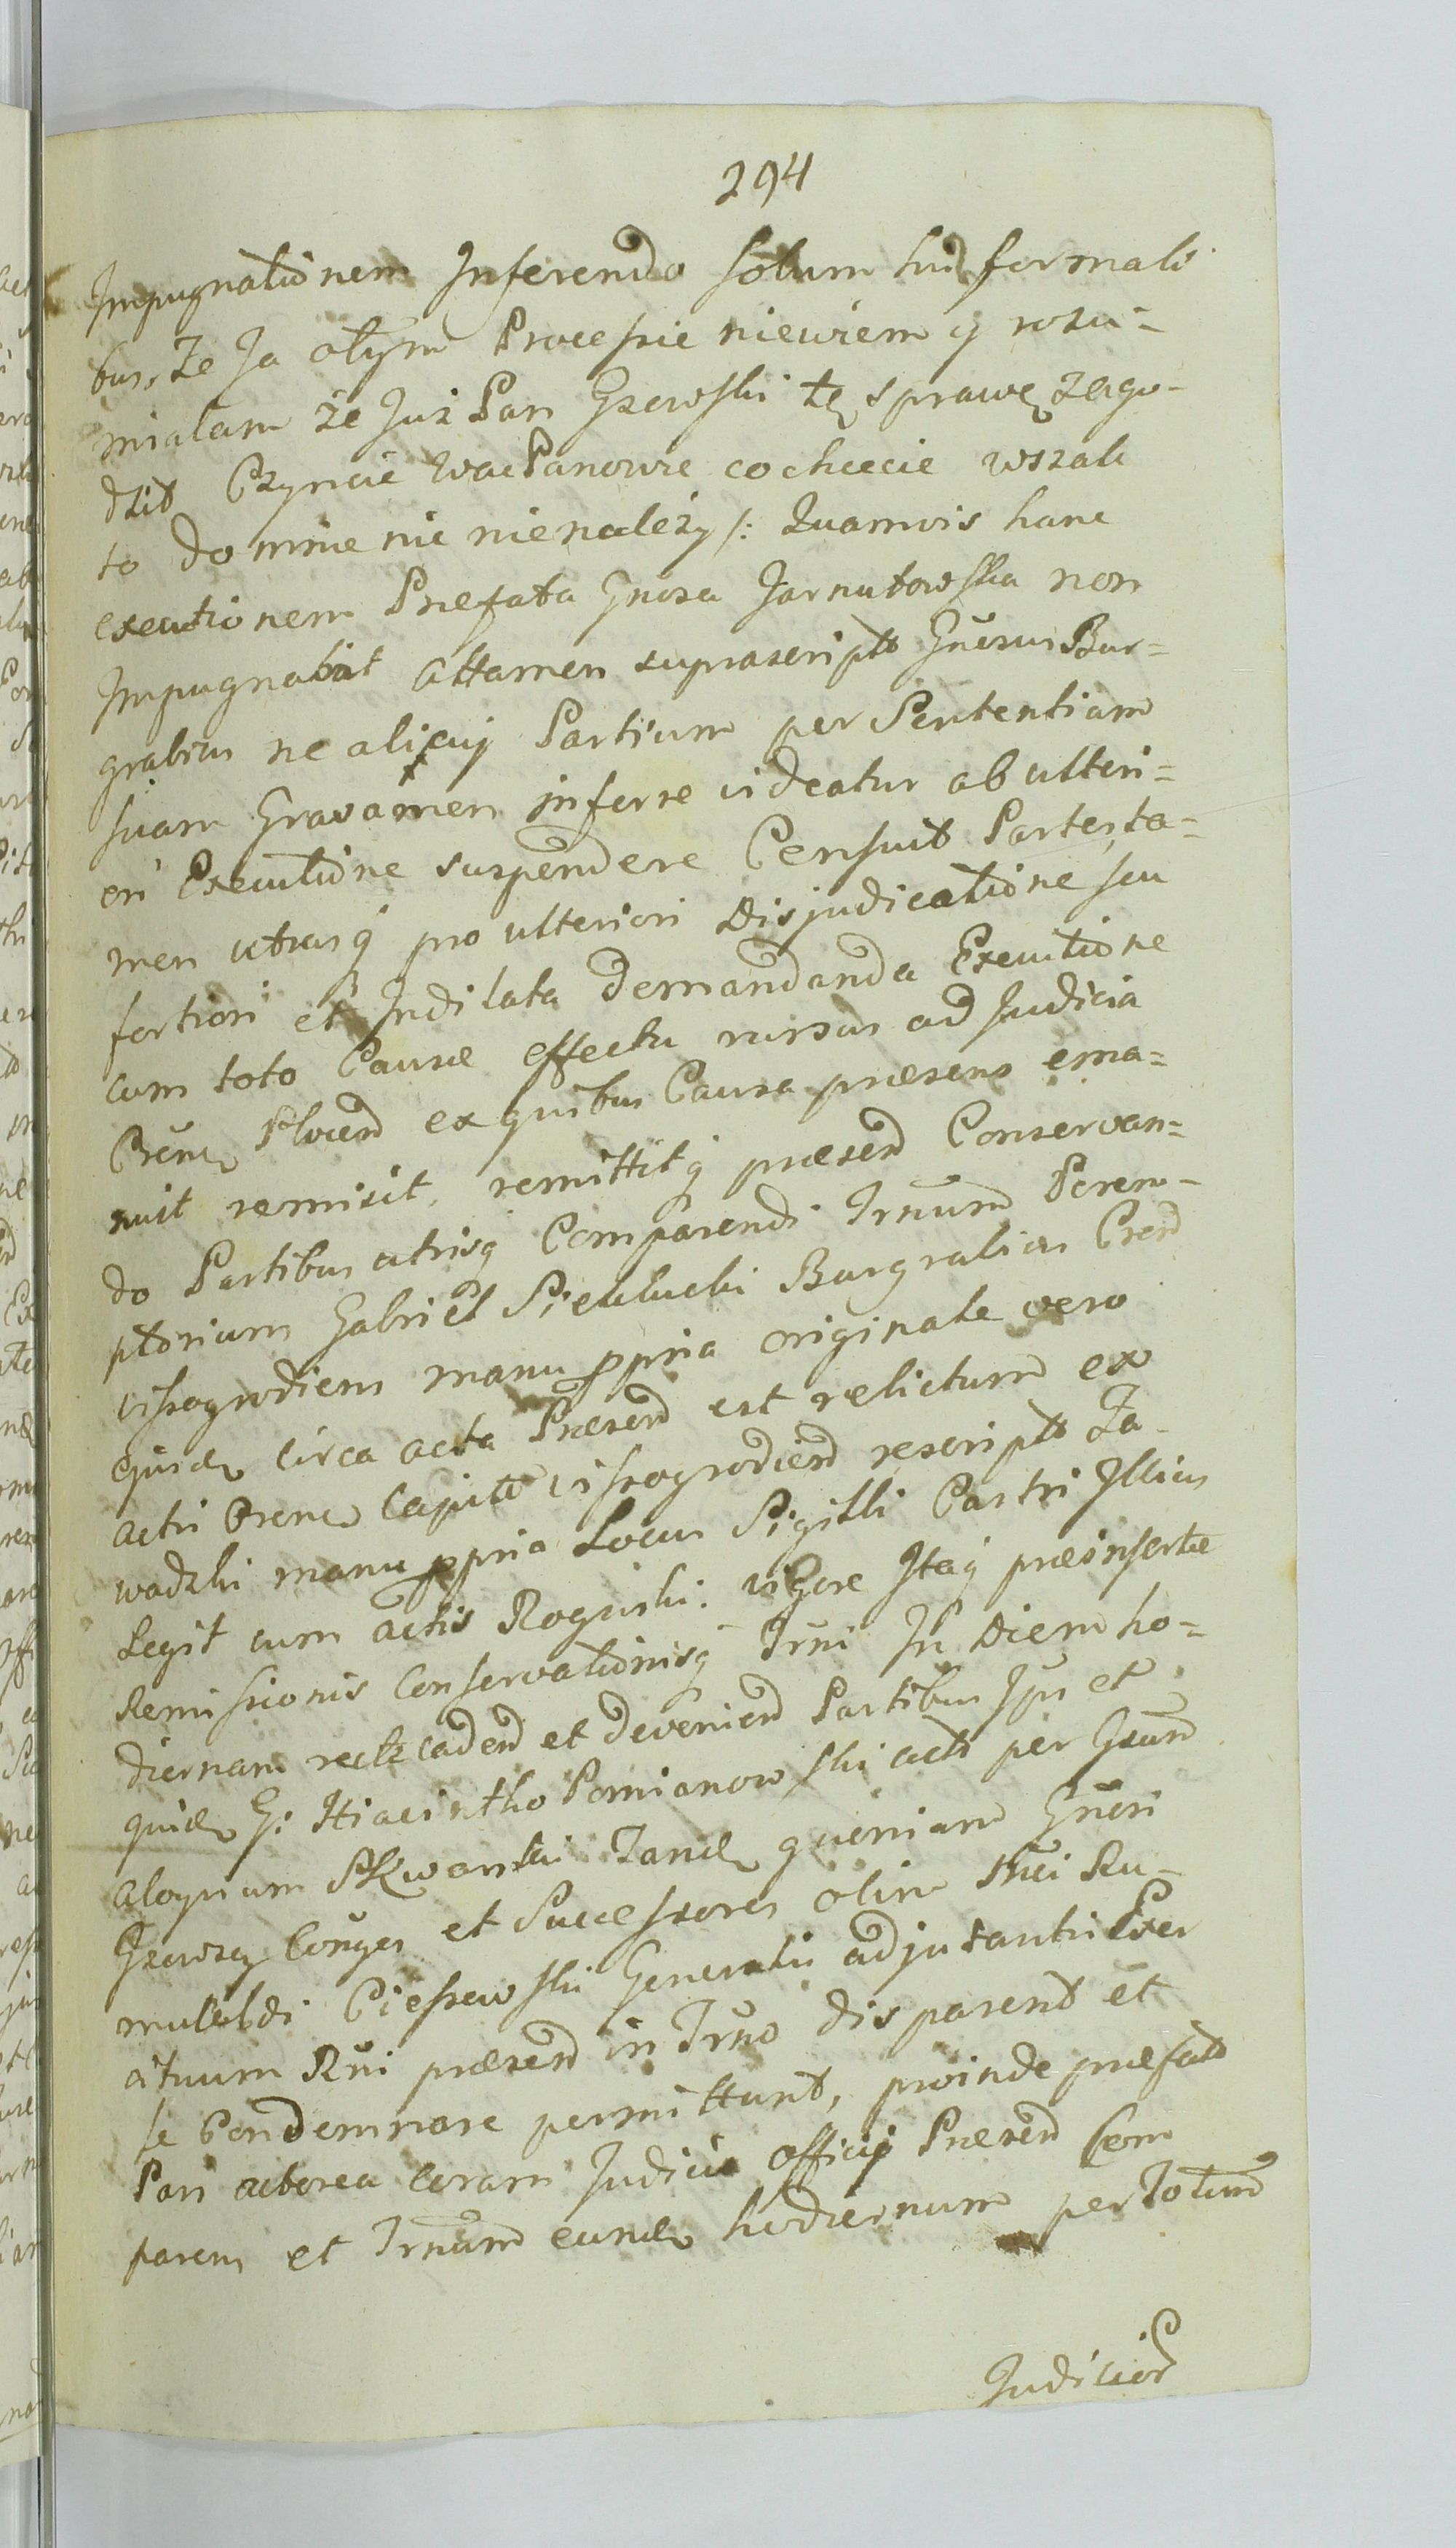 294
Impugnationem Inferendo solum his formali
bus, że Ja otym Processie niewiem y rozu=
miałam że Już Pan Gzowski tę sprawę zago-
dził Czyncie WacPanowie co chcecie wszak
to do mnie nic nienależy /: Quamvis hanc
executionem Præfata Gnosa Jarnutowska non
Impugnabit attamen suprascriptt Gnosus Bur=
grabius ne alicuj Partium per Sententiam
suam Gravamen inferre videatur ab ulteri=
ori Executione suspendere Censuit Partes, ta=
men utrasq pro ulteriori Disjudicatione seu
fortiori et Indilata demandanda Executione
cum toto Causæ effectu rursus ad Judicia
Crenæ Plocen ex quibus Causa præsens ema=
nuit remisit, remittitq præsen Conservan=
do Partibus utrisq Comparendi Trnum Perem-
ptorium Gabriel Burgrabius Cren
Vissogrodiens manu ppria originale vero
ejusd circa acta Præsen est relictum ex
actis Crenæ Capite Vissogrodien rescriptt Za-
wadzki manu ppria Locus Sigilli Castri Illius
Legit cum actis Rogiński: vigore Itaq præinsertæ
Remissionis Conservationisq Trni In Diem ho=
diernam recte caden et devenien Partibus Ipsis et
quid G: Hiacintho Pomianowski acto per Gsum
Aloysium Skwarski Tand quoniam Gnosi
Gzowscy Conges et Successores olim Mci Ru-
mualdi Ciessewski Generalis adjutantis Exer
cituum Rni præsen in Trno disparent et
se Condemnare permittunt, proinde præfatt
Pars actorea coram Judicio officij Præsen Com
parens et Trnum eund hodiernum per Totum
Judicior